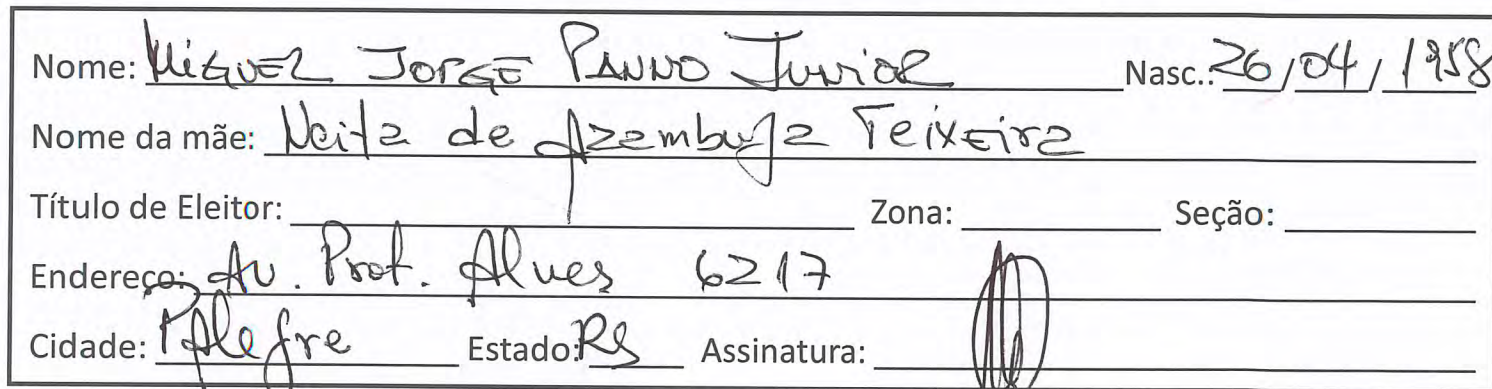 Nome: Miguel Jorge Panno Junior Nasc.: 26/04/1958
Nome da mãe: Neita de Azambuja Teixeira
Título de Eleitor: Zona: Seção:
Endereço: Av. Prof. Alves 6217
Cidade: PAlegre Estado: RS Assinatura: